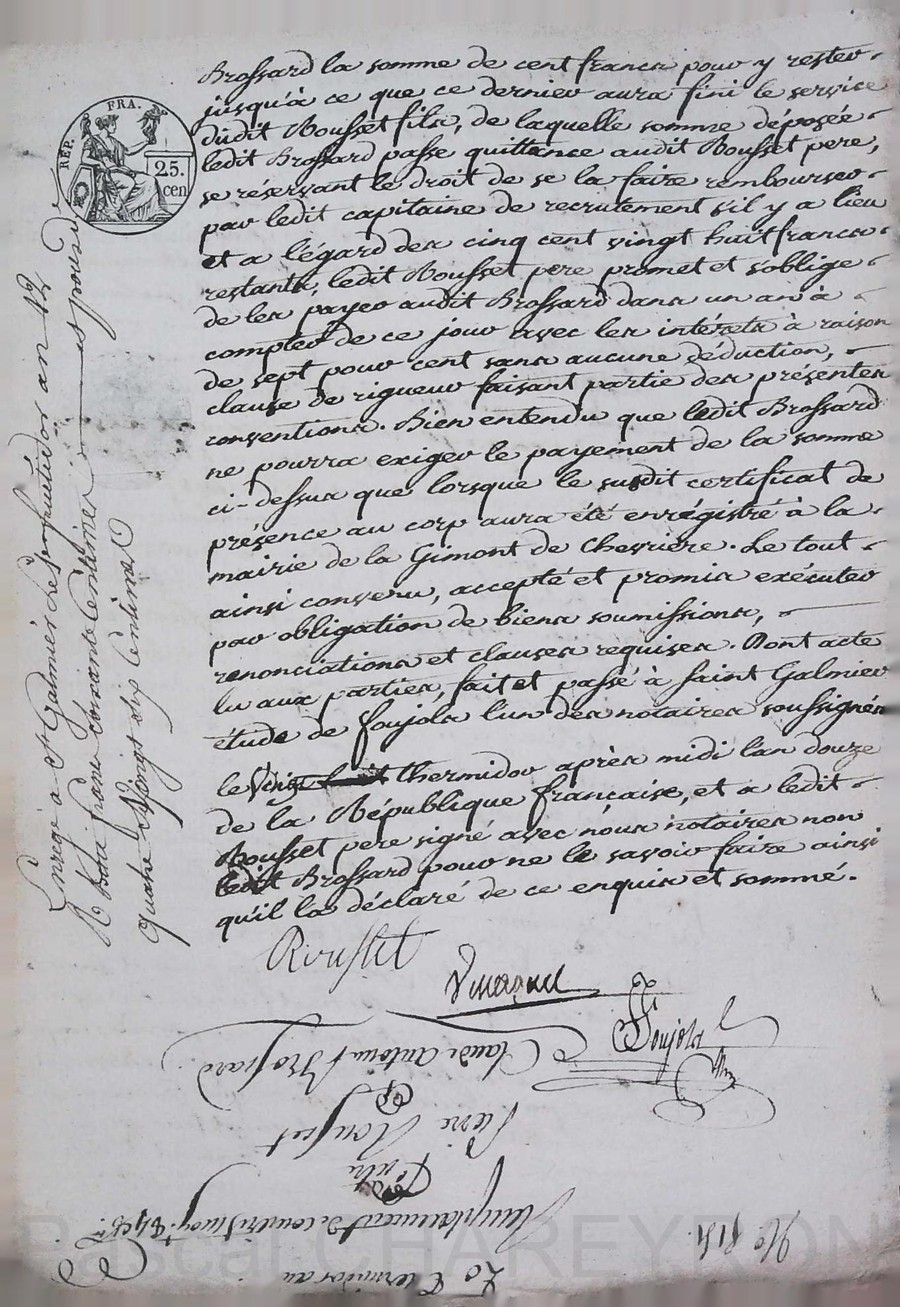 RÉP. FRA.
25.
cen
Brossard la somme de cent francs pour y rester
jusqu'à ce que ce dernier aura fini le service
dudit Rousset fils, de laquelle somme déposée
ledit Brossard passe quittance audit Rousset pere,
se réservant le droit de se la faire rembourser
par ledit capitaine de recrutement s'il y a lieu
et a l'égard des cinq cent vingt huit francs
restants, ledit Rousset pere promet et s'oblige
de les payer audit Brossard dans un an à
compter de ce jour avec les intérets à raison
de sept pour cent sans aucune déduction,
clause de rigueur faisant partie des présentes
conventions. Bien entendu que ledit Brossard
ne pourra exiger le payement de la somme
ci-dessus que lorsque le susdit certificat de
présence au corp aura été enrégistré à la
mairie de la Gimont de Chevriere. Le tout
ainsi convenu, accepté et promis exécuter
par obligation de biens soumissions,
renonciations et clauses requises. Dont acte
lu aux parties, fait et passé à saint Galmier
étude de foujols l'un des notaires soussignés
le Vingt thermidor après midi l'an douze
de la République française, et a ledit
Rousset pere signé avec nous notaires non
ledit Brossard pour ne le savoir faire ainsi
qu'il l'a déclaré de ce enquis et sommé.
Rousset
Foujols
Enregé a St Galmier le fructidor an 12
R francs Soixante Centimes
quatre Vingt dix Centimes
Claude Antoine Brossard
&
Pierre Rousset
Remplacement de conscrit
20 Thermidor an
No
Pascal CHAREYRON